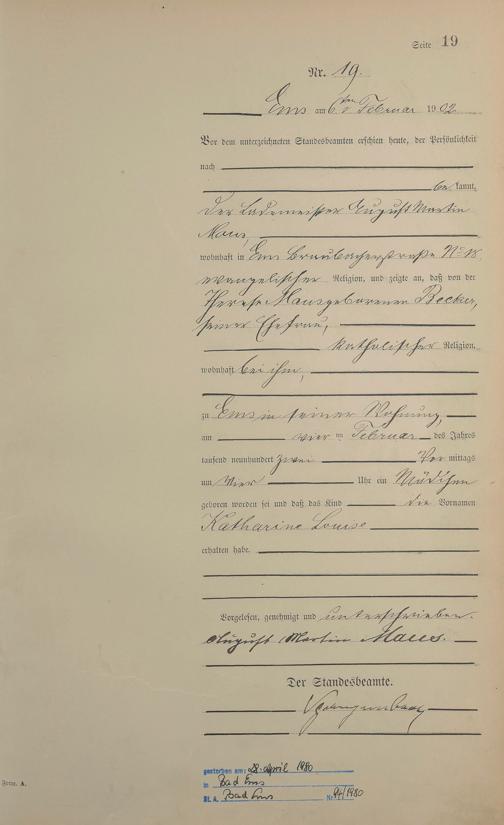 Seite 19
Nr. 19.
Ems am 6ten Februar 1902
Vor dem unterzeichneten Standesbeamten erschien heute, der Persönlichkeit
nach
bekannt,
der Lademeister August Martin
Maus,
wohnhaft in Ems Braubacherstraße No 18
evangelischer Religion, und zeigte an, daß von der
Therese Maus geborenen Becker,
seiner Ehefrau,
katholischer Religion,
wohnhaft bei ihm,
zu Ems in seiner Wohnung,
am vier ten Februar des Jahres
tausend neunhundert zwei Vor mittags
um vier Uhr ein Mädchen
geboren worden sei und daß das Kind die Vornamen
Katharine Louise
erhalten habe.
Vorgelesen, genehmigt und unterschrieben.
August Martin Maus.
Der Standesbeamte.
gestorben am: 28. April 1980
in Bad Ems
St. A. Bad Ems Nr. 94/1980
Form. A.